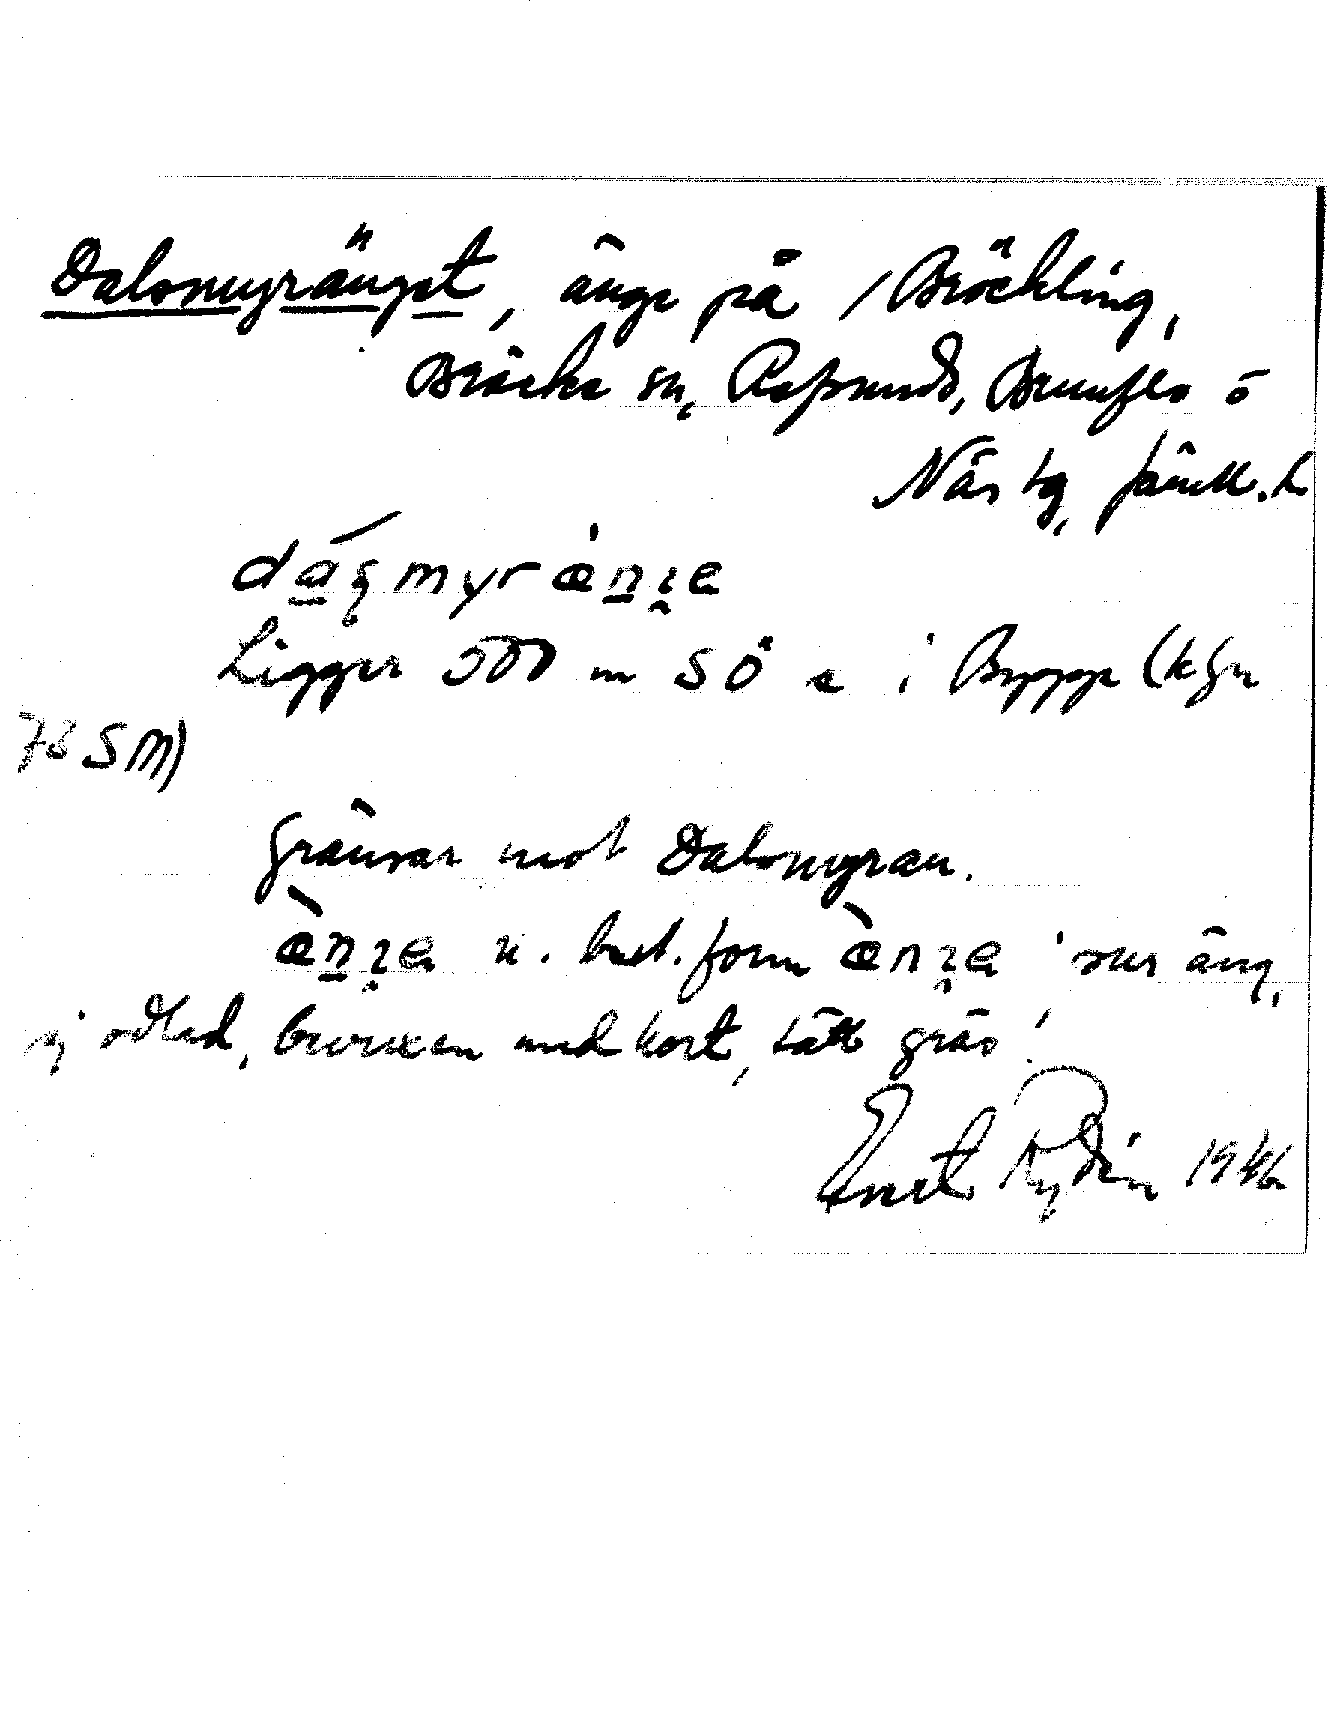 Dalomyränget, änge på /Bröckling,
Bräcke sn, Refsunds, Brunflo o
Näs tg, Jämtl. L
dạɣmyrænʒe
Ligger 500 m SÖ i Bygge (kfn
73 SM)
Gränsar mot Dalomyran.
ænʒe n. best. form ænʒa 'sur äng,
ej odlad, bevuxen med kort, tätt gräs'
Ernst Rydén 1946